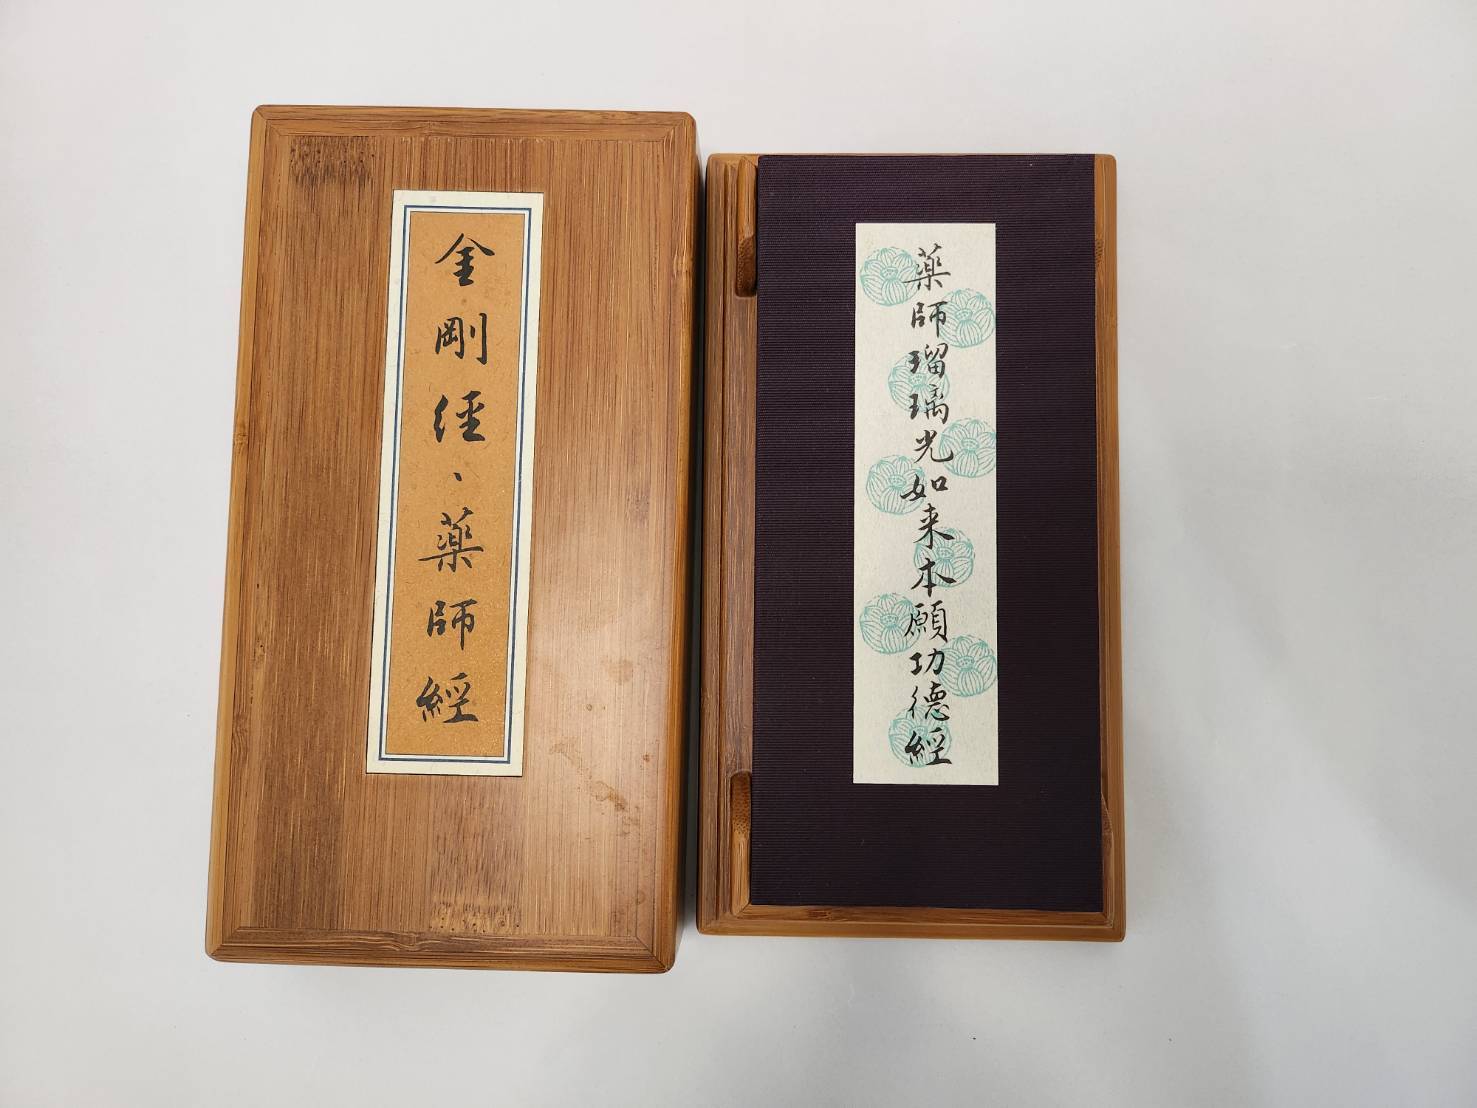 金剛经、薬師經
薬師瑠璃光如来本願功德經